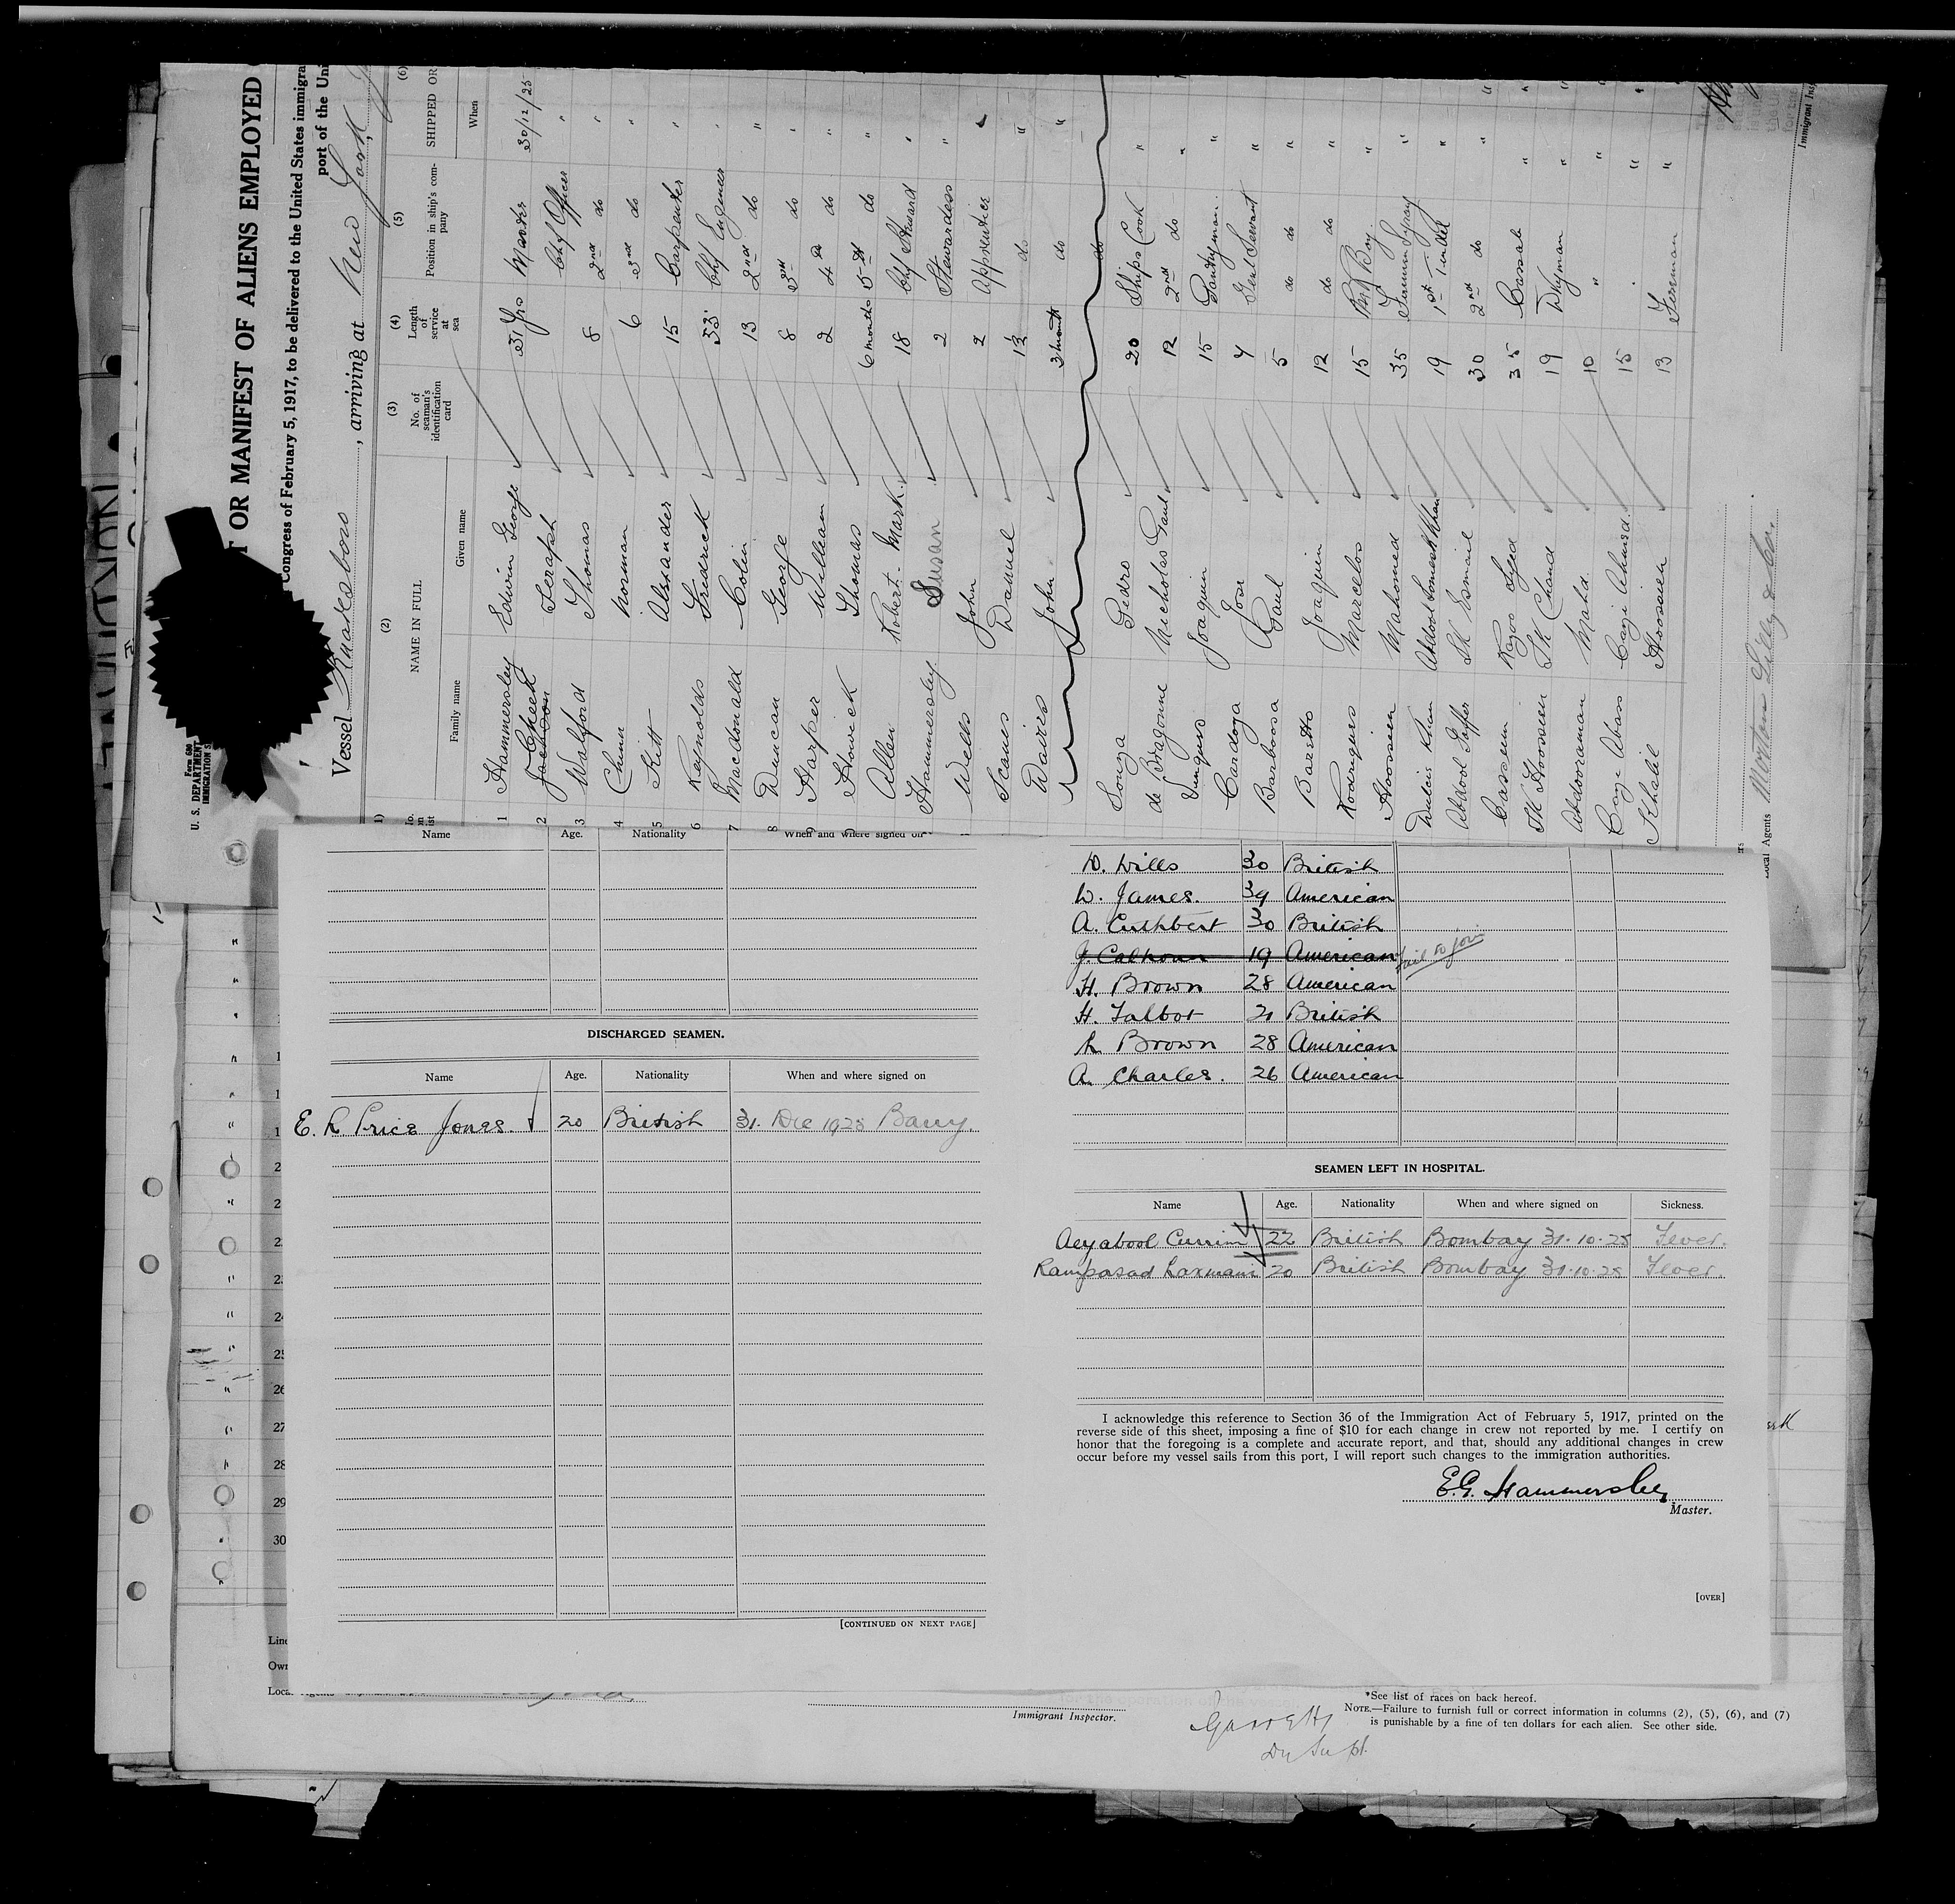 T OR MANIFEST OF ALIENS EMPLOYED
Congress of February 5, 1917, to be delivered to the United States immigra
port of the Uni
Vessel Knaresboro, arriving at New York,
Form 680
U. S. DEPARTMENT
IMMIGRATION S
(2) (3) (4) (5) (6)
NAME IN FULL No. of seaman's identification card Length of service at sea Position in ship's company SHIPPED OR
Family name Given name When
1 Hammersley Edwin George 31 Yrs Master 30/12/25
2 Cheek Seraph Chf Officer "
3 Walford Thomas 8 2nd do "
4 Norman 6 3rd do "
5 Kitt Alexander 15 Carpenter "
6 Reynolds Fredrick 33 Chf Engineer "
7 Macdonald Colin 13 2nd do "
8 Duncan George 8 3rd do "
9 Harper William 2 4th do "
Howick Thomas 6 months 5th do "
Allen Robert Mark 18 Chf Steward "
Hammersley Susan 2 Stewardess "
Wells John 2 Apprentice "
Scames Daniel 1½ do "
Davies John 3 month do "
do
Souza Pedro 20 Ships Cook "
de Bragonne Nicholas Paul 12 2nd do "
Joaquin 15 Pantryman "
Cardoza Jose 4 Genl Servant "
Barbosa Paul 5 do do "
Baretto Joaquin 12 do do "
Rodrigues Marcelos 15 Boy "
Hoosien Mahomed 35 "
Khan Abdool Somesh Khan 19 1st Tindel "
Abdool Goffer SK Esmail 30 2nd do "
Cassum Syed 35 Cassab "
SK Hoosseen SK Chand 19 Dkyman "
Abdooraman Mahd. 10 " "
Cazi Abass Cazi Ahmed 15 "
Khalil Hoosseen 13 Fireman "
Local Agents Morton Lilly & Co.
Name Age. Nationality When and where signed on
DISCHARGED SEAMEN.
Name Age. Nationality When and where signed on
E. L Price Jones. 20 British 31. Dec 1925 Barry.
[CONTINUED ON NEXT PAGE]
D. Wills 30 British
W. James. 39 American
A. Cuthbert 30 British
J. Calhoun 19 American fail to join
H. Brown 28 American
H. Talbot 21 British
L Brown 28 American
A. Charles. 26 American
SEAMEN LEFT IN HOSPITAL.
Name Age. Nationality When and where signed on Sickness.
Aeyabool Currim 22 British Bombay 31·10·25 Fever.
Rampasad Laxman 20 British Bombay 31·10·25 Fever.
I acknowledge this reference to Section 36 of the Immigration Act of February 5, 1917, printed on the
reverse side of this sheet, imposing a fine of $10 for each change in crew not reported by me. I certify on
honor that the foregoing is a complete and accurate report, and that, should any additional changes in crew
occur before my vessel sails from this port, I will report such changes to the immigration authorities.
E.G. Hammersley
Master.
[OVER]
22
23
24
25
26
27
28
29
30
Line
Own
Immigrant Inspector.
*See list of races on back hereof.
NOTE.—Failure to furnish full or correct information in columns (2), (5), (6), and (7)
is punishable by a fine of ten dollars for each alien. See other side.